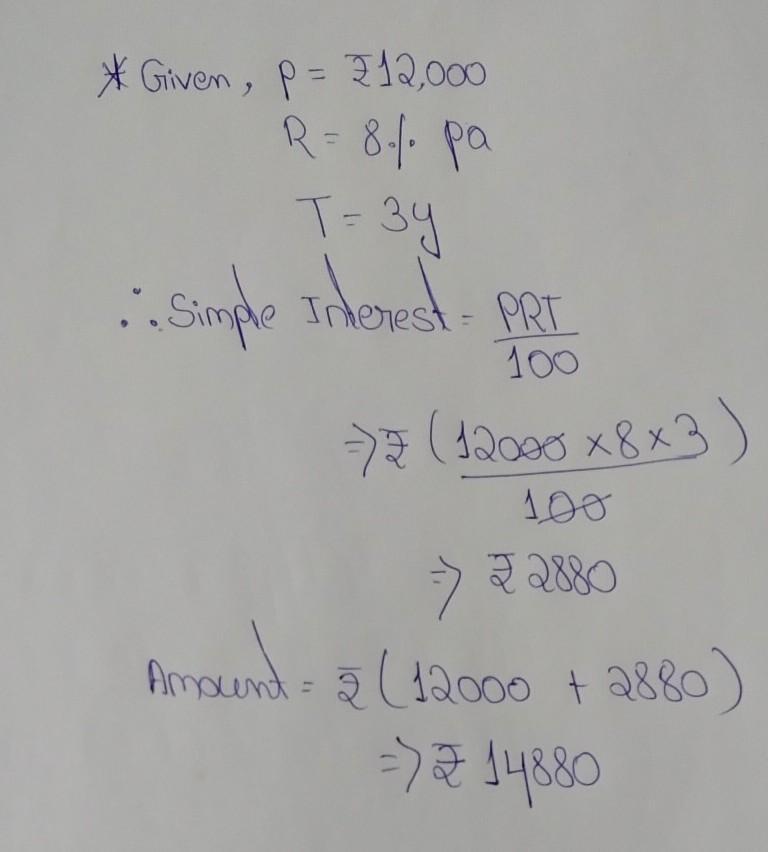 * Given, P = ₹12,000
R = 8% pa
T = 3y
∴ Simple Interest = PRT/100
⇒ ₹ (12000 × 8 × 3 / 100)
⇒ ₹ 2880
Amount = ₹ (12000 + 2880)
⇒ ₹ 14880